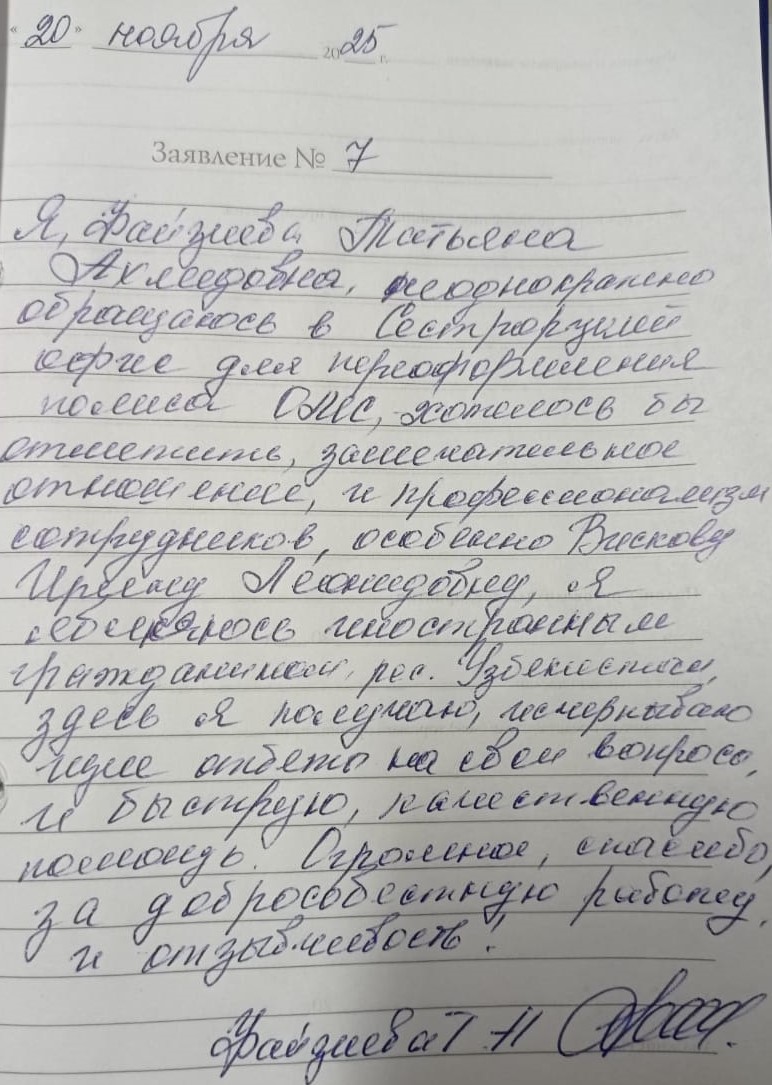 « 20 » ноября 2025 г.
Заявление № 7
Я, Файзиева Татьяна
Ахмедовна, неоднократно
обращаюсь в Сестрорецкий
офис для переоформления
полиса ОМС, хотелось бы
отметить, замечательное
отношение, и профессионализм
сотрудников, особенно Вискову
Ирину Леонидовну, я
являюсь иностранным
гражданином, рес. Узбекистан,
здесь я получаю, исчерпываю
щие ответы на свои вопросы,
и быструю, качественную
помощь. Огромное, спасибо,
за добрсовестную работу,
и отзывчивость!
Файзиева Т А